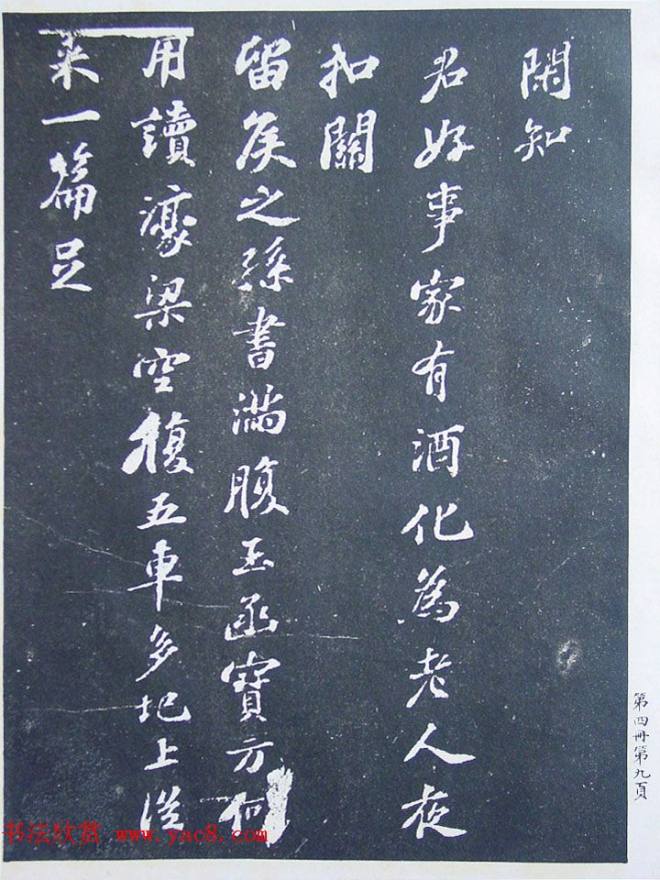 閑知
君好事家有酒化為老人夜
扣關
留矦之孫書滿腹玉函寶方何
用讀濠梁空復五車多圯上從
来一篇足
第四冊第九頁
书法欣赏 www.yac8.com